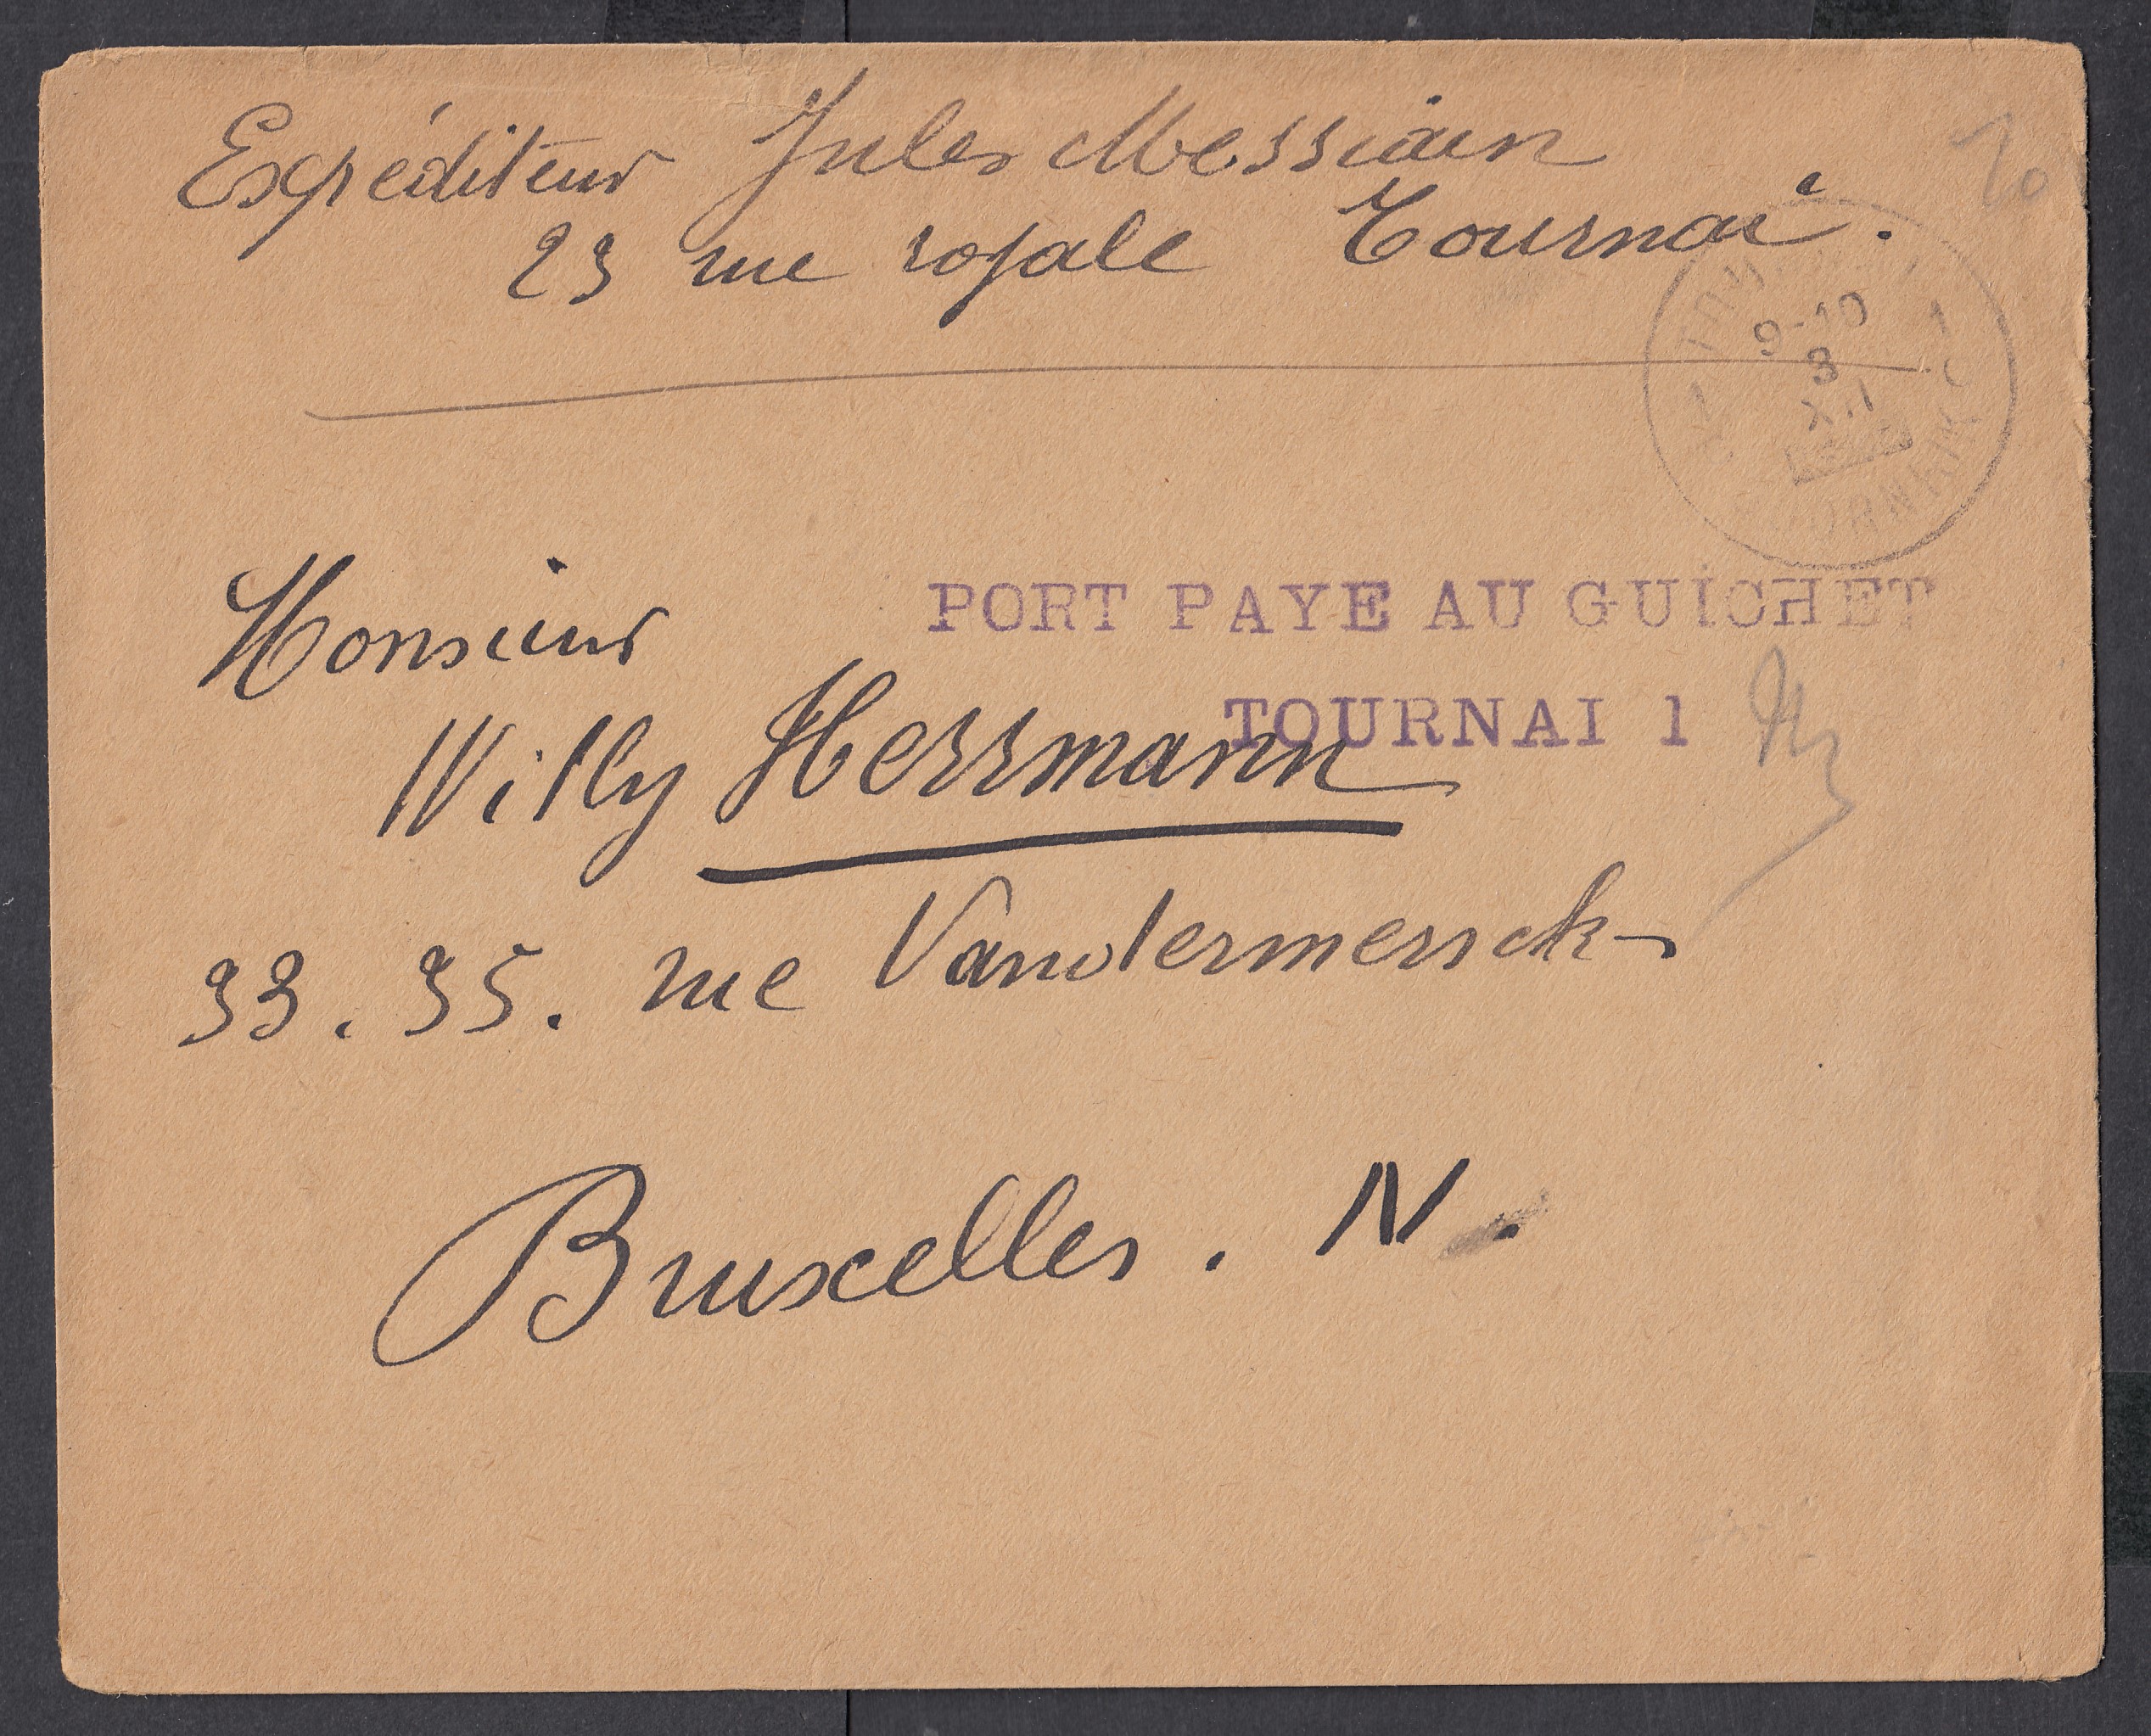 Expéditeur Jules Messiaen
23 rue royale Tournai.
20
9-10
3
XII
PORT PAYE AU GUICHET
TOURNAI 1
Monsieur
Willy Herrmann
33.35. rue Vandermersck
Bruxelles. N.